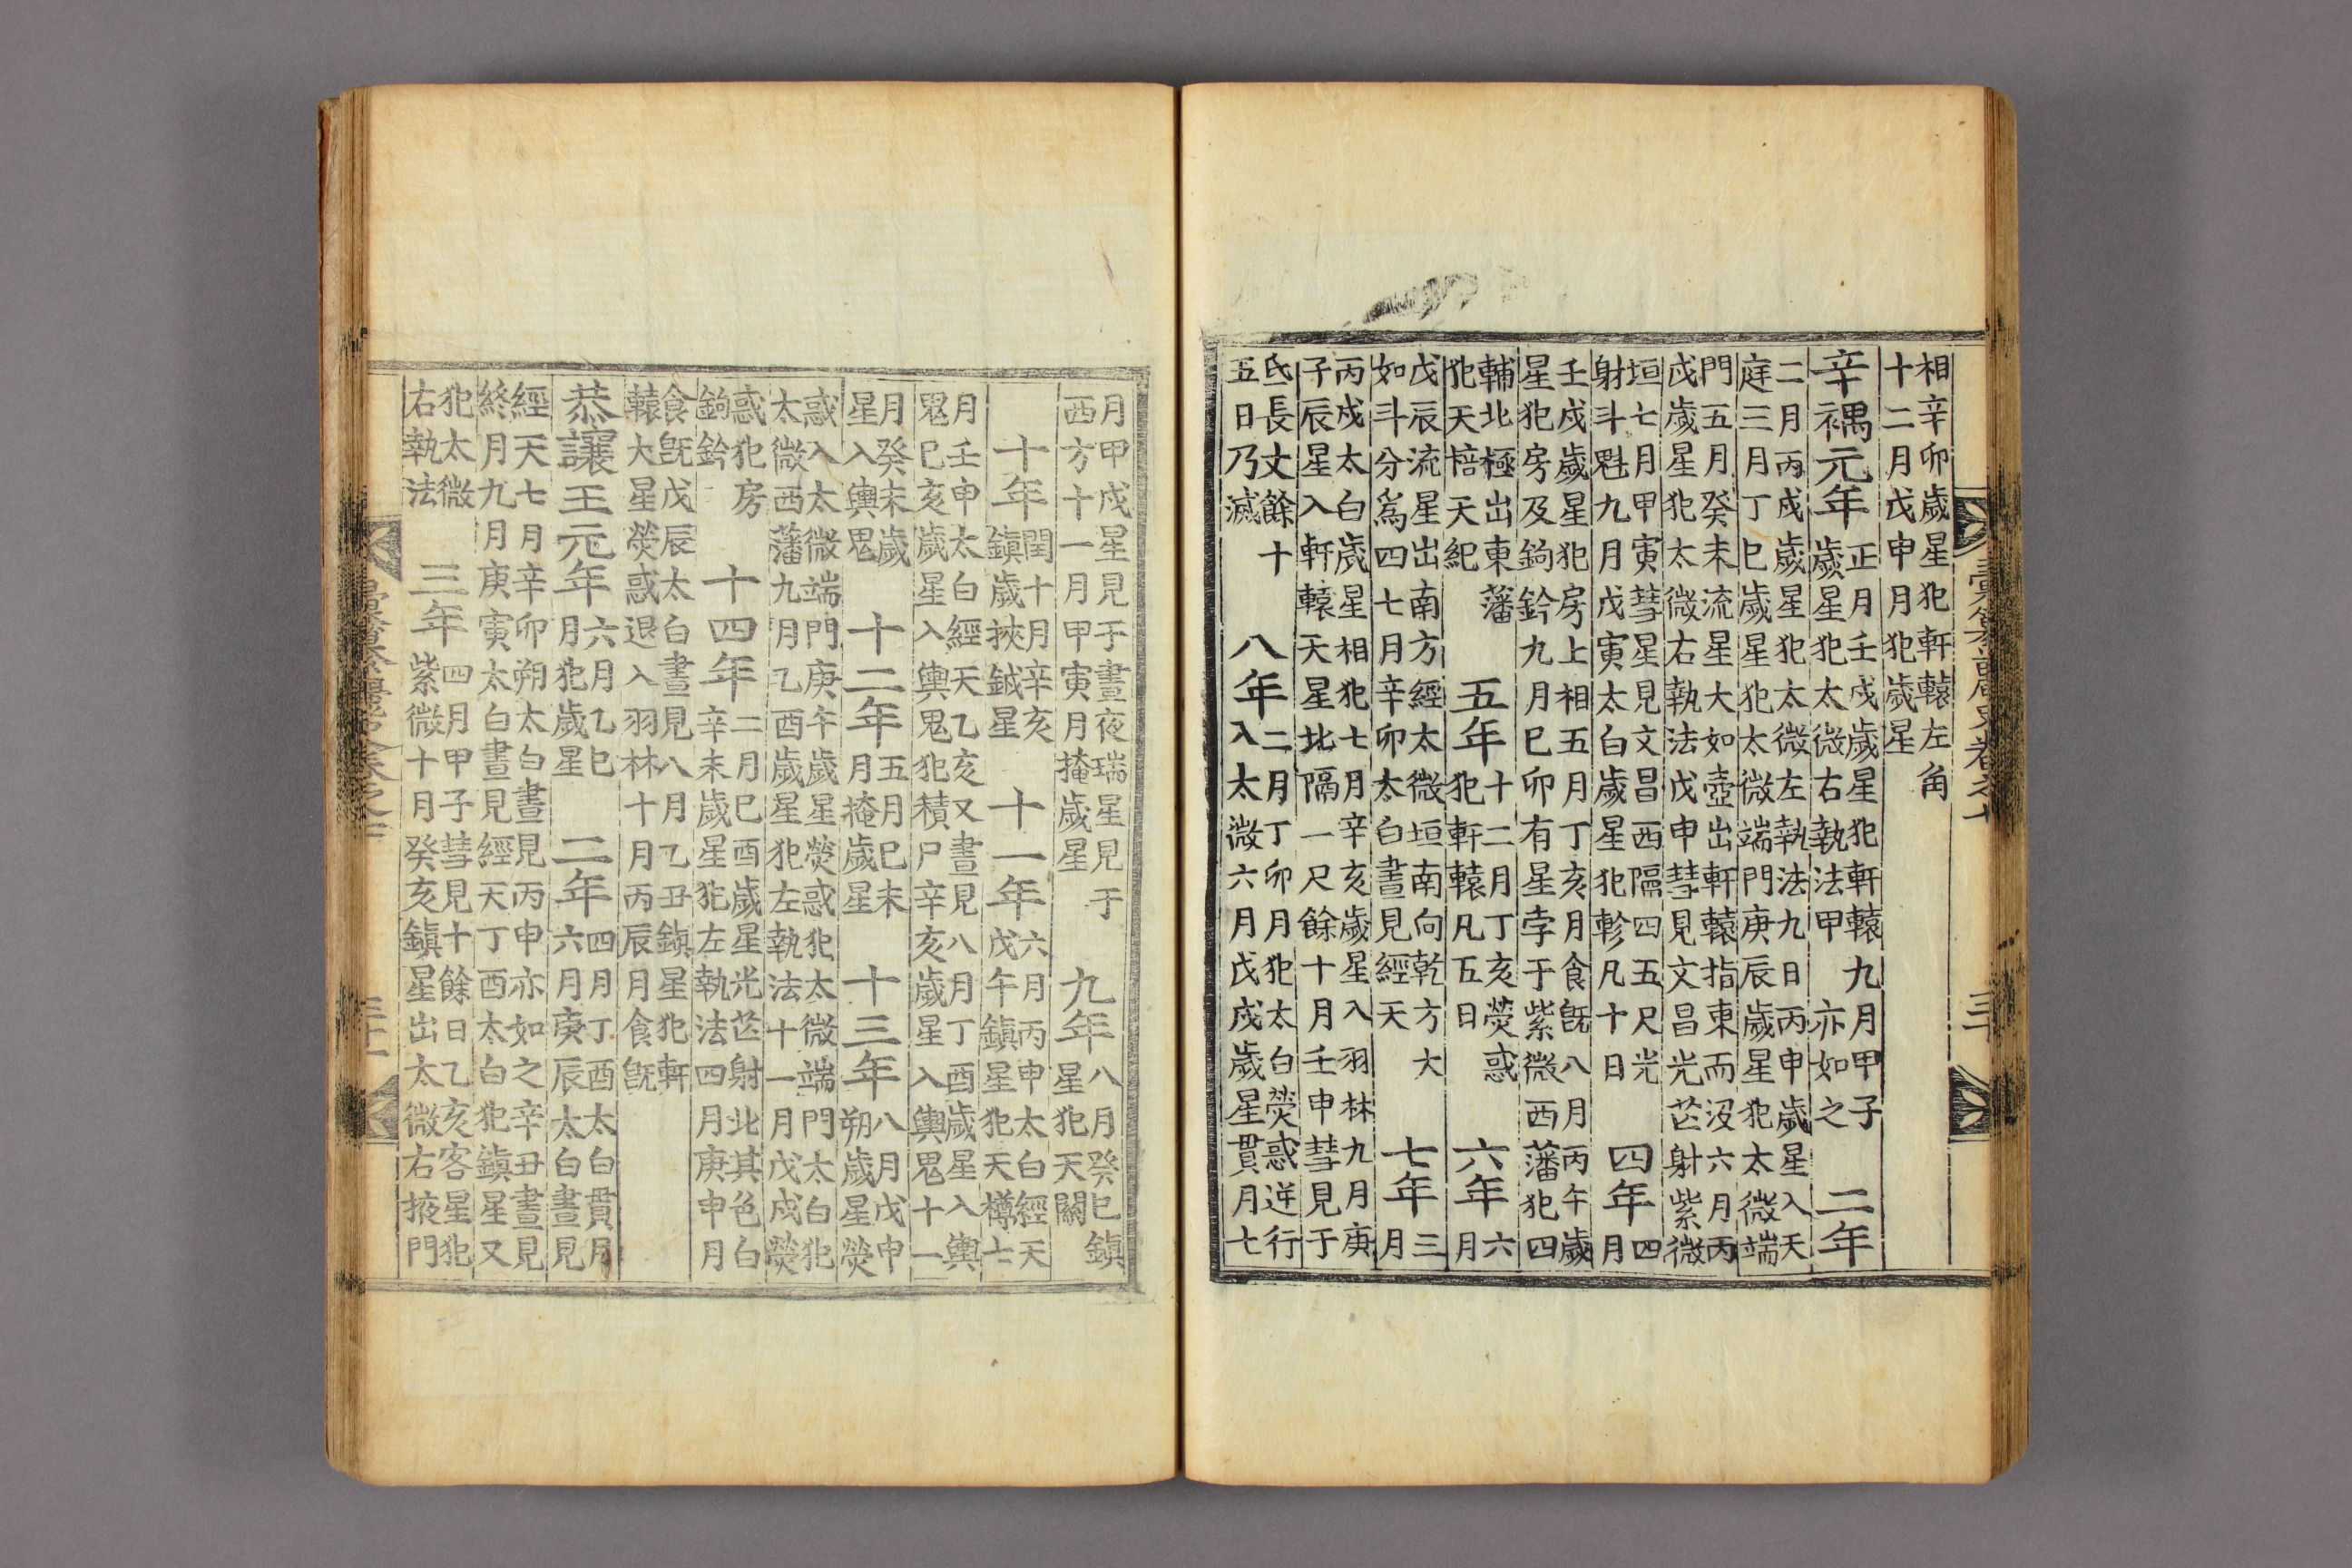 相辛卯歲星犯軒轅左角
十二月戊申月犯歲星
辛禑元年
正月壬戌歲星犯軒轅九月甲子
歲星犯太微右執法甲 亦如之
二年
二月丙戌歲星犯太微左執法九日丙申歲星入天
庭三月丁巳歲星犯太微端門庚辰歲星犯太微端
門五月癸未流星大如壺出軒轅指東而沒六月丙
戌歲星犯太微右執法戊申彗見文昌光芒射紫微
垣七月甲寅彗星見文昌西隔四五尺光
射斗魁九月戊寅太白歲星犯軫凡十日
四年
四
月
壬戌歲星犯房上相五月丁亥月食旣八月丙午歲
星犯房及鉤鈐九月巳卯有星孛于紫微西藩犯四
輔北極出東藩
犯天棓天紀
五年
十二月丁亥熒惑
犯軒轅凡五日
六年
六
月
戊辰流星出南方經太微垣南向乾方大
如斗分爲四七月辛卯太白晝見經天
七年
三
月
丙戌太白歲星相犯七月辛亥歲星入羽林九月庚
子辰星入軒轅天星北隔一尺餘十月壬申彗見于
氐長丈餘十
五日乃滅
八年
二月丁卯月犯太白熒惑逆行
入太微六月戊戌歲星貫月七
三十
月甲戌星見于晝夜瑞星見于
西方十一月甲寅月掩歲星
九年
八月癸巳鎭
星犯天關
十年
閏十月辛亥
鎭歲挾鉞星
十一年
六月丙申太白經天
戊午鎭星犯天樽七
月壬申太白經天乙亥又晝見八月丁酉歲星入輿
鬼巳亥歲星入輿鬼犯積尸辛亥歲星入輿鬼十一
月癸未歲
星入輿鬼
十二年
五月巳未
月掩歲星
十三年
八月戊申
朔歲星熒
惑入太微端門庚午歲星熒惑犯太微端門太白犯
太微西藩九月乙酉歲星犯左執法十一月戊戌熒
惑犯房
鉤鈐
十四年
二月巳酉歲星光芒射北其色白
辛未歲星犯左執法四月庚申月
食旣戊辰太白晝見八月乙丑鎭星犯軒
轅大星熒惑退入羽林十月丙辰月食旣
恭讓王元年
六月乙巳
月犯歲星
二年
四月丁酉太白貫月
六月庚辰太白晝見
經天七月辛卯朔太白晝見丙申亦如之辛丑晝見
終月九月庚寅太白晝見經天丁酉太白犯鎭星又
犯太微
右執法
三年
四月甲子彗見十餘日乙亥客星犯
紫微十月癸亥鎭星出太微右掖門